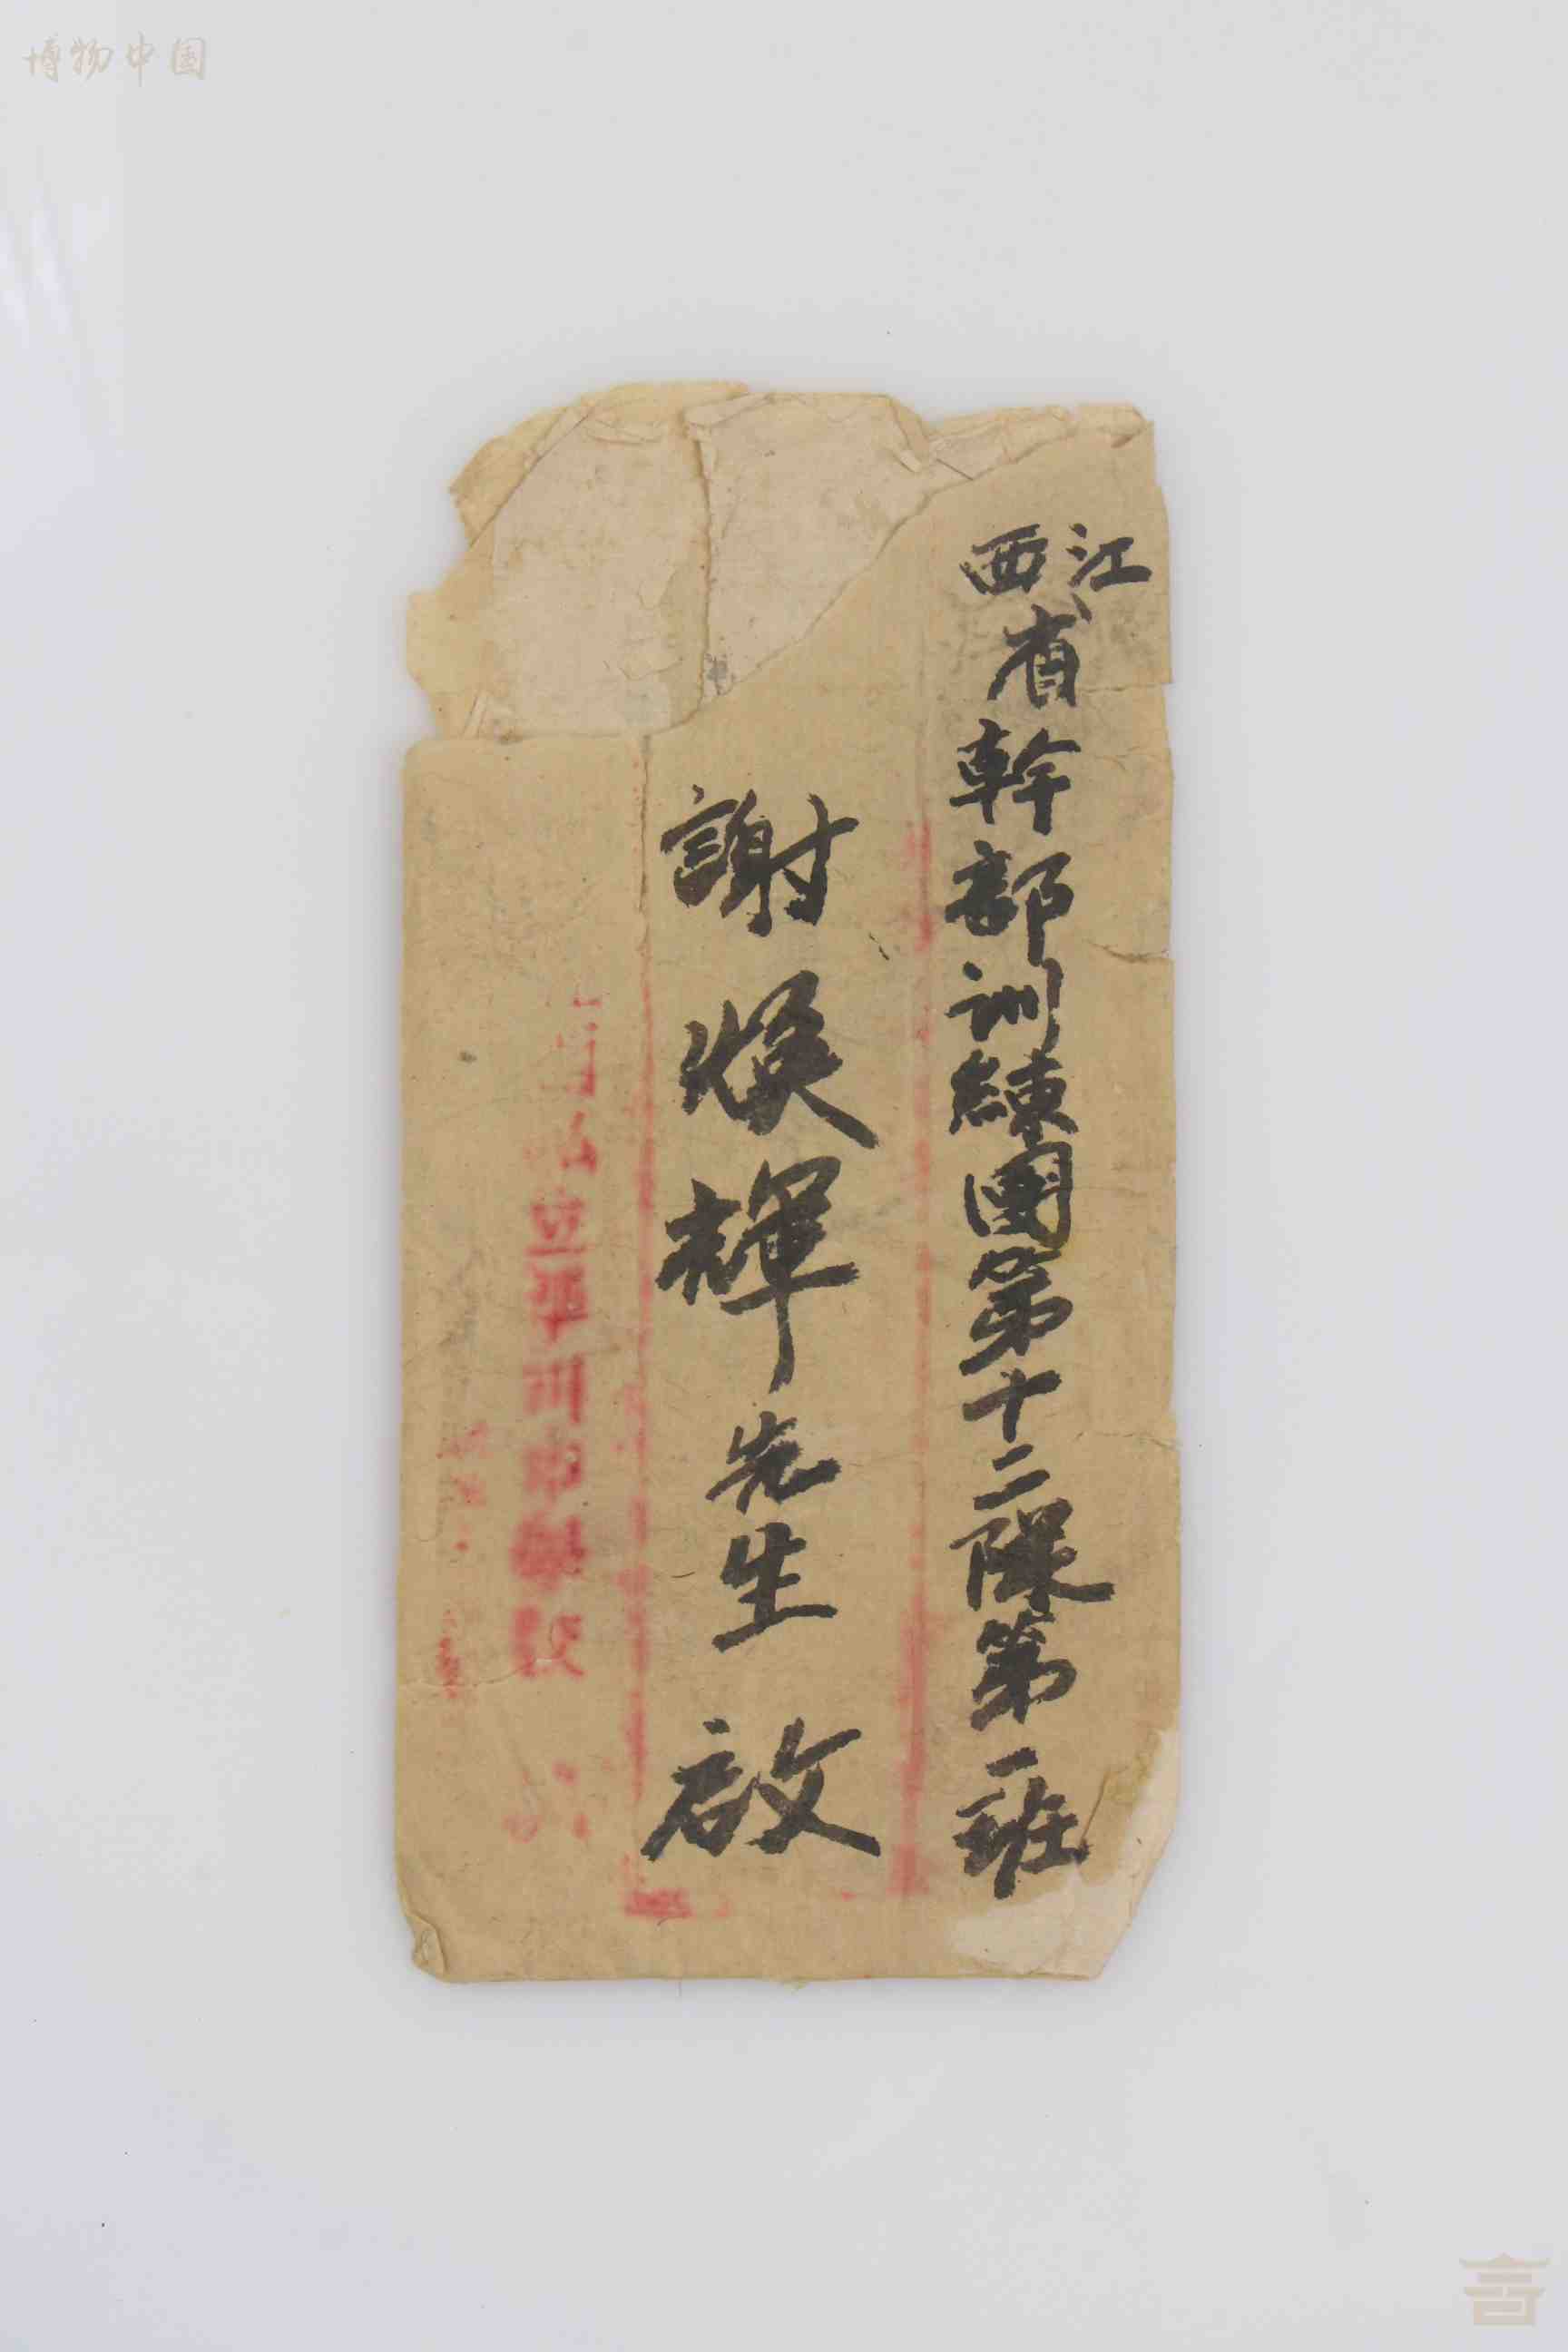 博物中国
江西省幹部訓練團第十二隊第一班
謝煥輝先生 啟
立平川中學